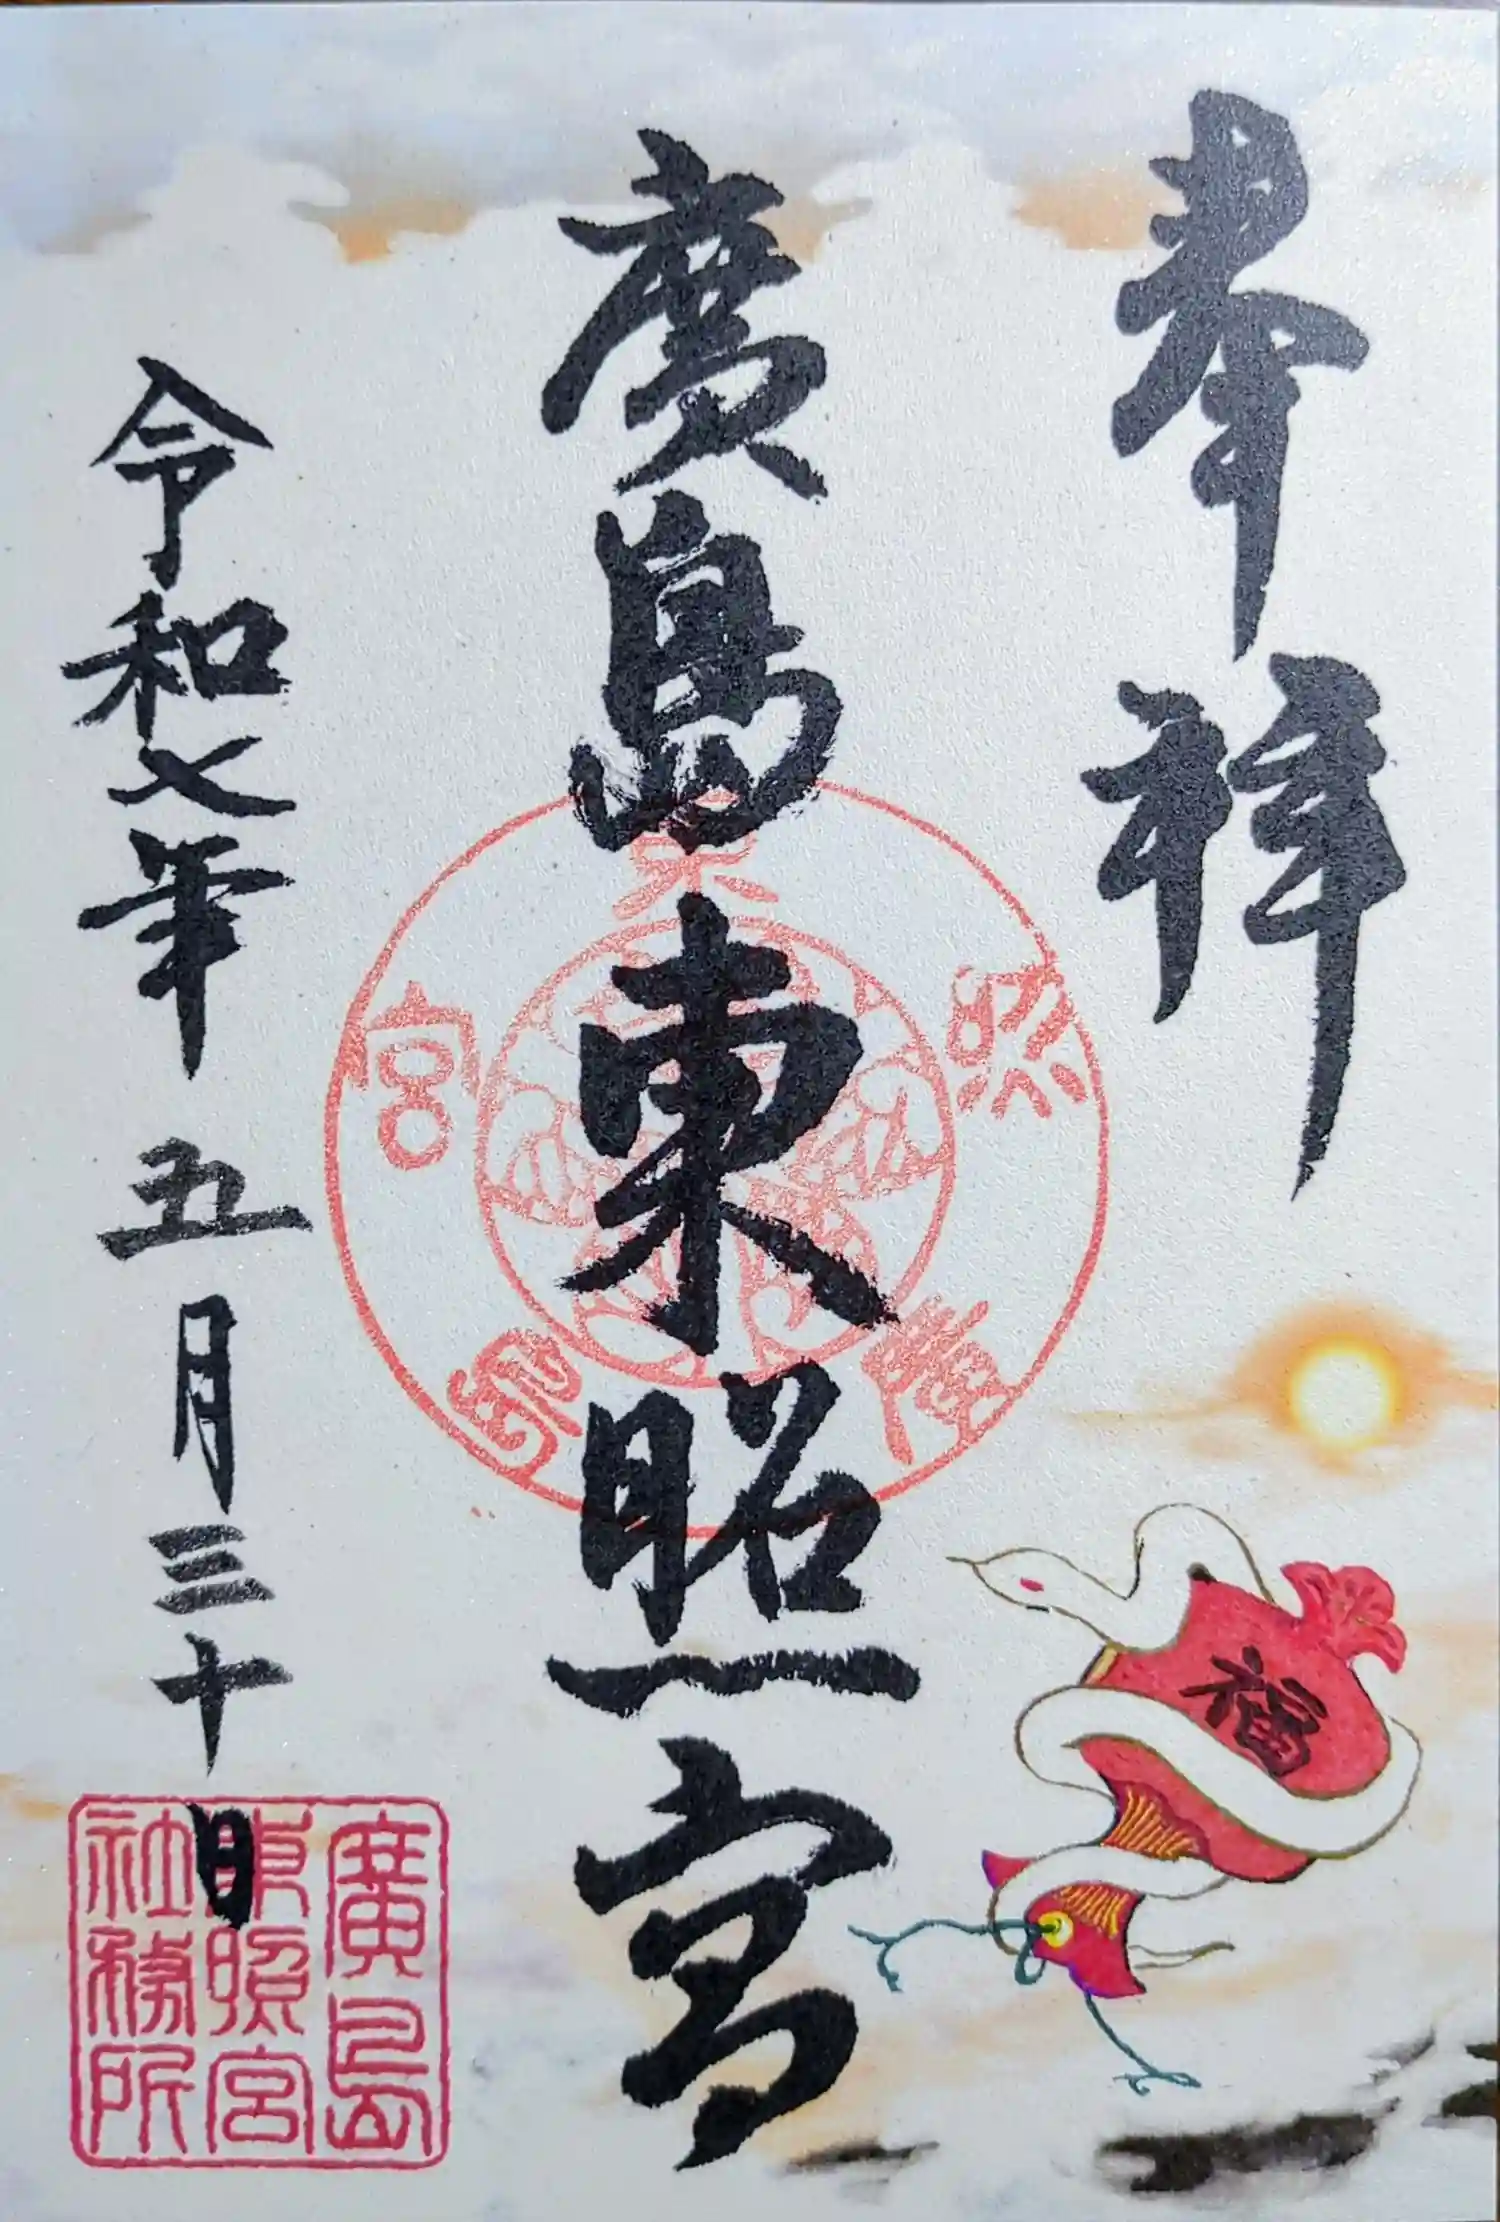 奉拝
廣島東照宮
令和七年 五月三十日
福
廣島
東照宮
社務所
東
照
宮
廣
島